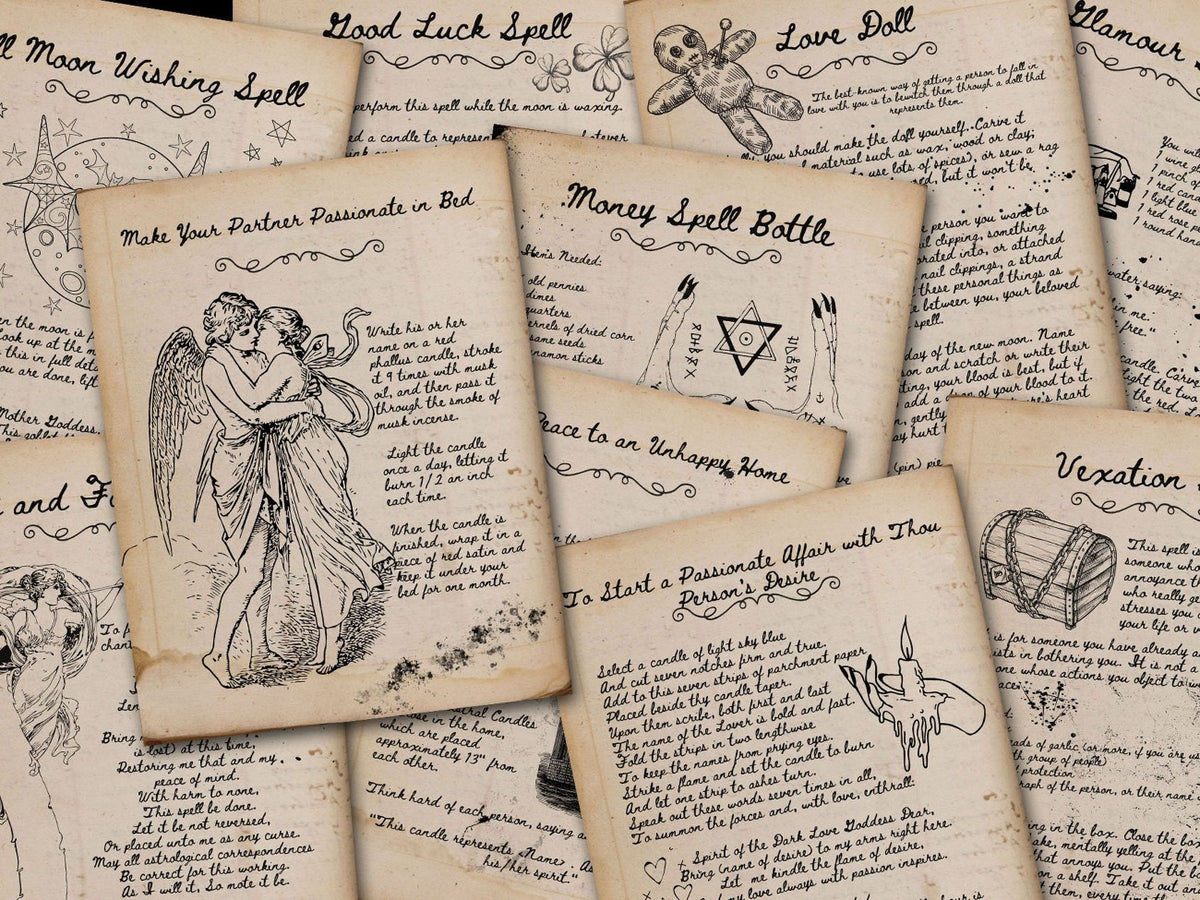 ll Moon Wishing Spell
en the moon is f
ook up at the m
this in full det
ou are done, lift
Mother Goddess,
Good Luck Spell
perform this spell while the moon is waxing.
ed a candle to represent
Love Doll
The best known way of getting a person to fall in
love with you is to bewitch them through a doll that
represents them.
you should make the doll yourself. Carve it
material such as wax, wood or clay;
to use lots of spices), or sew a rag
but it won't be
person you want to
il clipping, something
orated into, or attached
nail clippings, a strand
these personal things as
between you, your beloved
spell.
day of the new moon. Name
on and scratch or write their
ting, your blood is best, but if
add a pin of your blood to it.
gently
ay hurt
(pin) pie
Glamour
You will
1 wine g
1 pinch o
1 red cand
1 light blue
1 red rose pe
1 round han
water saying:
in me.
free."
candle. Carve
light the two
the red. L
Make Your Partner Passionate in Bed
Write his or her
name on a red
phallus candle, stroke
it 9 times with musk
oil, and then pass it
through the smoke of
musk incense.
Light the candle
once a day, letting it
burn 1/2 an inch
each time.
When the candle is
finished, wrap it in a
piece of red satin and
keep it under your
bed for one month.
Money Spell Bottle
Items Needed:
old pennies
dimes
quarters
ernels of dried corn
same seeds
nnamon sticks
Peace to an Unhappy Home
ural Candles
ose in the home,
which are placed
approximately 13" from
each other.
Think hard of each person, saying a
"This candle represents Name. As
his/her spirit."
and Fo
Bring
is lost) at this time,
Restoring me that and my
peace of mind.
With harm to none,
This spell be done.
Let it be not reversed,
Or placed unto me as any curse.
May all astrological correspondences
Be correct for this working.
As I will it, So mote it be.
To Start a Passionate Affair with Thou
Person's Desire
Select a candle of light sky blue
And cut seven notches firm and true.
Add to this seven strips of parchment paper
Placed beside thy candle taper.
Upon them scribe, both first and last
The name of the Lover is bold and fast.
Fold the strips in two lengthwise
To keep the names from prying eyes.
Strike a flame and set the candle to burn
And let one strip to ashes turn.
Speak out these words seven times in all,
To summon the forces and, with love, enthrall:
Spirit of the Dark Love Goddess Dear,
Bring (name of desire) to my arms right here.
Let me kindle the flame of desire,
my love always with passion inspires.
Vexation
This spell is
someone who
annoyance th
who really ge
stresses you o
your life or w
is for someone you have already a
ists in bothering you. It is not a
one whose actions you object to
ads of garlic (or more, if you are us
th group of people)
protection
raph of the person, or their name
ing in the box. Close the box
ake, mentally yelling at the
that annoys you. Put the bo
on a shelf. Take it out an
them, every time